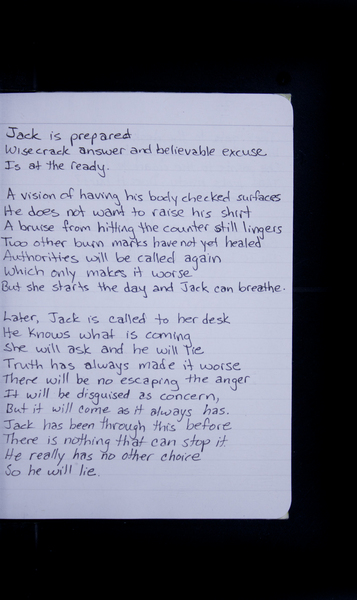 Jack is prepared
Wisecrack answer and believable excuse
Is at the ready.
A vision of having his body checked surfaces
He does not want to raise his shirt
A bruise from hitting the counter still lingers
Two other burn marks have not yet healed
Authorities will be called again
Which only makes it worse
But she starts the day and Jack can breathe.
Later, Jack is called to her desk
He knows what is coming
She will ask and he will lie
Truth has always made it worse
There will be no escaping the anger
It will be disguised as concern,
But it will come as it always has.
Jack has been through this before
There is nothing that can stop it
He really has no other choice
So he will lie.